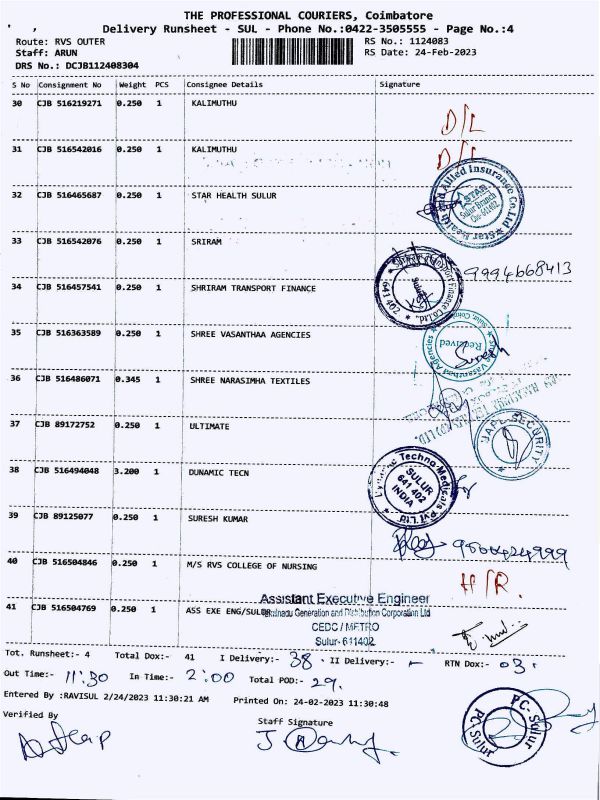 THE PROFESSIONAL COURIERS, Coimbatore
Delivery Runsheet - SUL - Phone No.:0422-3505555 - Page No.:4
Route: RVS OUTER
RS No.: 1124083
Staff: ARUN
RS Date: 24-Feb-2023
DRS No.: DCJB112408304
S No Consignment No Weight PCS Consignee Details Signature
30 CJB 516219271 0.250 1 KALIMUTHU
D/L
31 CJB 516542016 0.250 1 KALIMUTHU
D/L
32 CJB 516465687 0.250 1 STAR HEALTH SULUR
Star Health and Allied Insurance Co.Ltd
STAR
Sulur Branch
33 CJB 516542076 0.250 1 SRIRAM
9994668413
34 CJB 516457541 0.250 1 SHRIRAM TRANSPORT FINANCE
Transport Finance Co.Ltd.
641 402
35 CJB 516363589 0.250 1 SHREE VASANTHAA AGENCIES
Received
36 CJB 516486071 0.345 1 SHREE NARASIMHA TEXTILES
37 CJB 89172752 0.250 1 ULTIMATE
JAPL SECURITY
38 CJB 516494048 3.200 1 DUNAMIC TECN
Techno Medicals Pvt.Ltd
SULUR
641 402
INDIA
39 CJB 89125077 0.250 1 SURESH KUMAR
40 CJB 516504846 0.250 1 M/S RVS COLLEGE OF NURSING
H/R.
Assistant Executive Engineer
41 CJB 516504769 0.250 1 ASS EXE ENG/SULUR
Tamilnadu Generation and Distribution Corporation Ltd
CEDC / METRO
Sulur- 611402
Tot. Runsheet:- 4 Total Dox:- 41 I Delivery:- 38. II Delivery:- - RTN Dox:- 03.
Out Time:- 11:30 In Time:- 2:00 Total POD:- 29.
Entered By :RAVISUL 2/24/2023 11:30:21 AM Printed On: 24-02-2023 11:30:48
Verified By
Staff Signature
PC-Sulur
PC-Sulur